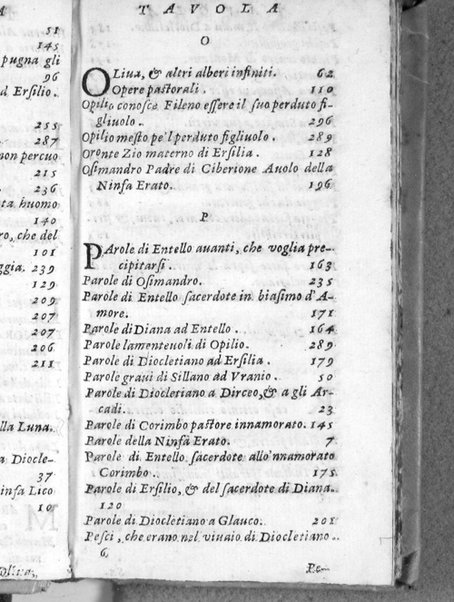 A
51
145
pugna gli
96
d Ersilio.
255
287
non percuo
215
236
ta huomo
140
ro, che del
101
ggia. 239
129
209
207
207
206
211
lla Luna.
a Diocle-
37
infa Lico
10
Oliua,
TAVOLA
O
OLiua, & altri alberi infiniti. 62
Opere pastorali. 110
Opilio conosce Fileno essere il suo perduto fi-
gliuolo. 296
Opilio mesto pe'l perduto figliuolo. 289
Oronte Zio materno di Ersilia. 128
Osimandro Padre di Ciberione Auolo della
Ninfa Erato. 196
P
PArole di Entello auanti, che voglia pre-
cipitarsi. 163
Parole di Osimandro. 235
Parole di Entello sacerdote in biasimo d'A-
more. 171
Parole di Diana ad Entello. 164
Parole lamenteuoli di Opilio. 289
Parole di Diocletiano ad Ersilia. 179
Parole graui di Sillano ad Vranio. 50
Parole di Diocletiano a Dirceo, & a gli Ar-
cadi. 23
Parole di Corimbo pastore innamorato. 145
Parole della Ninfa Erato. 7
Parole di Entello sacerdote allo'nnamorato
Corimbo. 175
Parole di Ersilio, & del sacerdote di Diana.
120
Parole di Diocletiano a Glauco. 201
Pesci, che erano nel viuaio di Diocletiano.
6.
Pe-